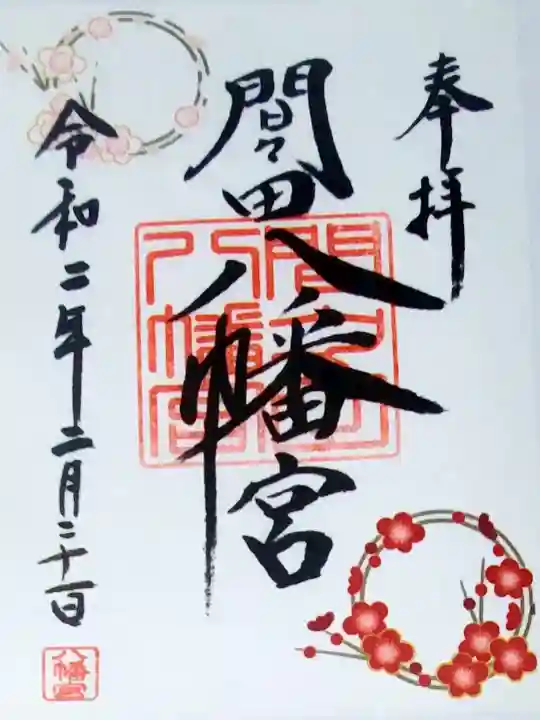 奉拝
間々田八幡宮
令和二年二月二十一日
八幡宮